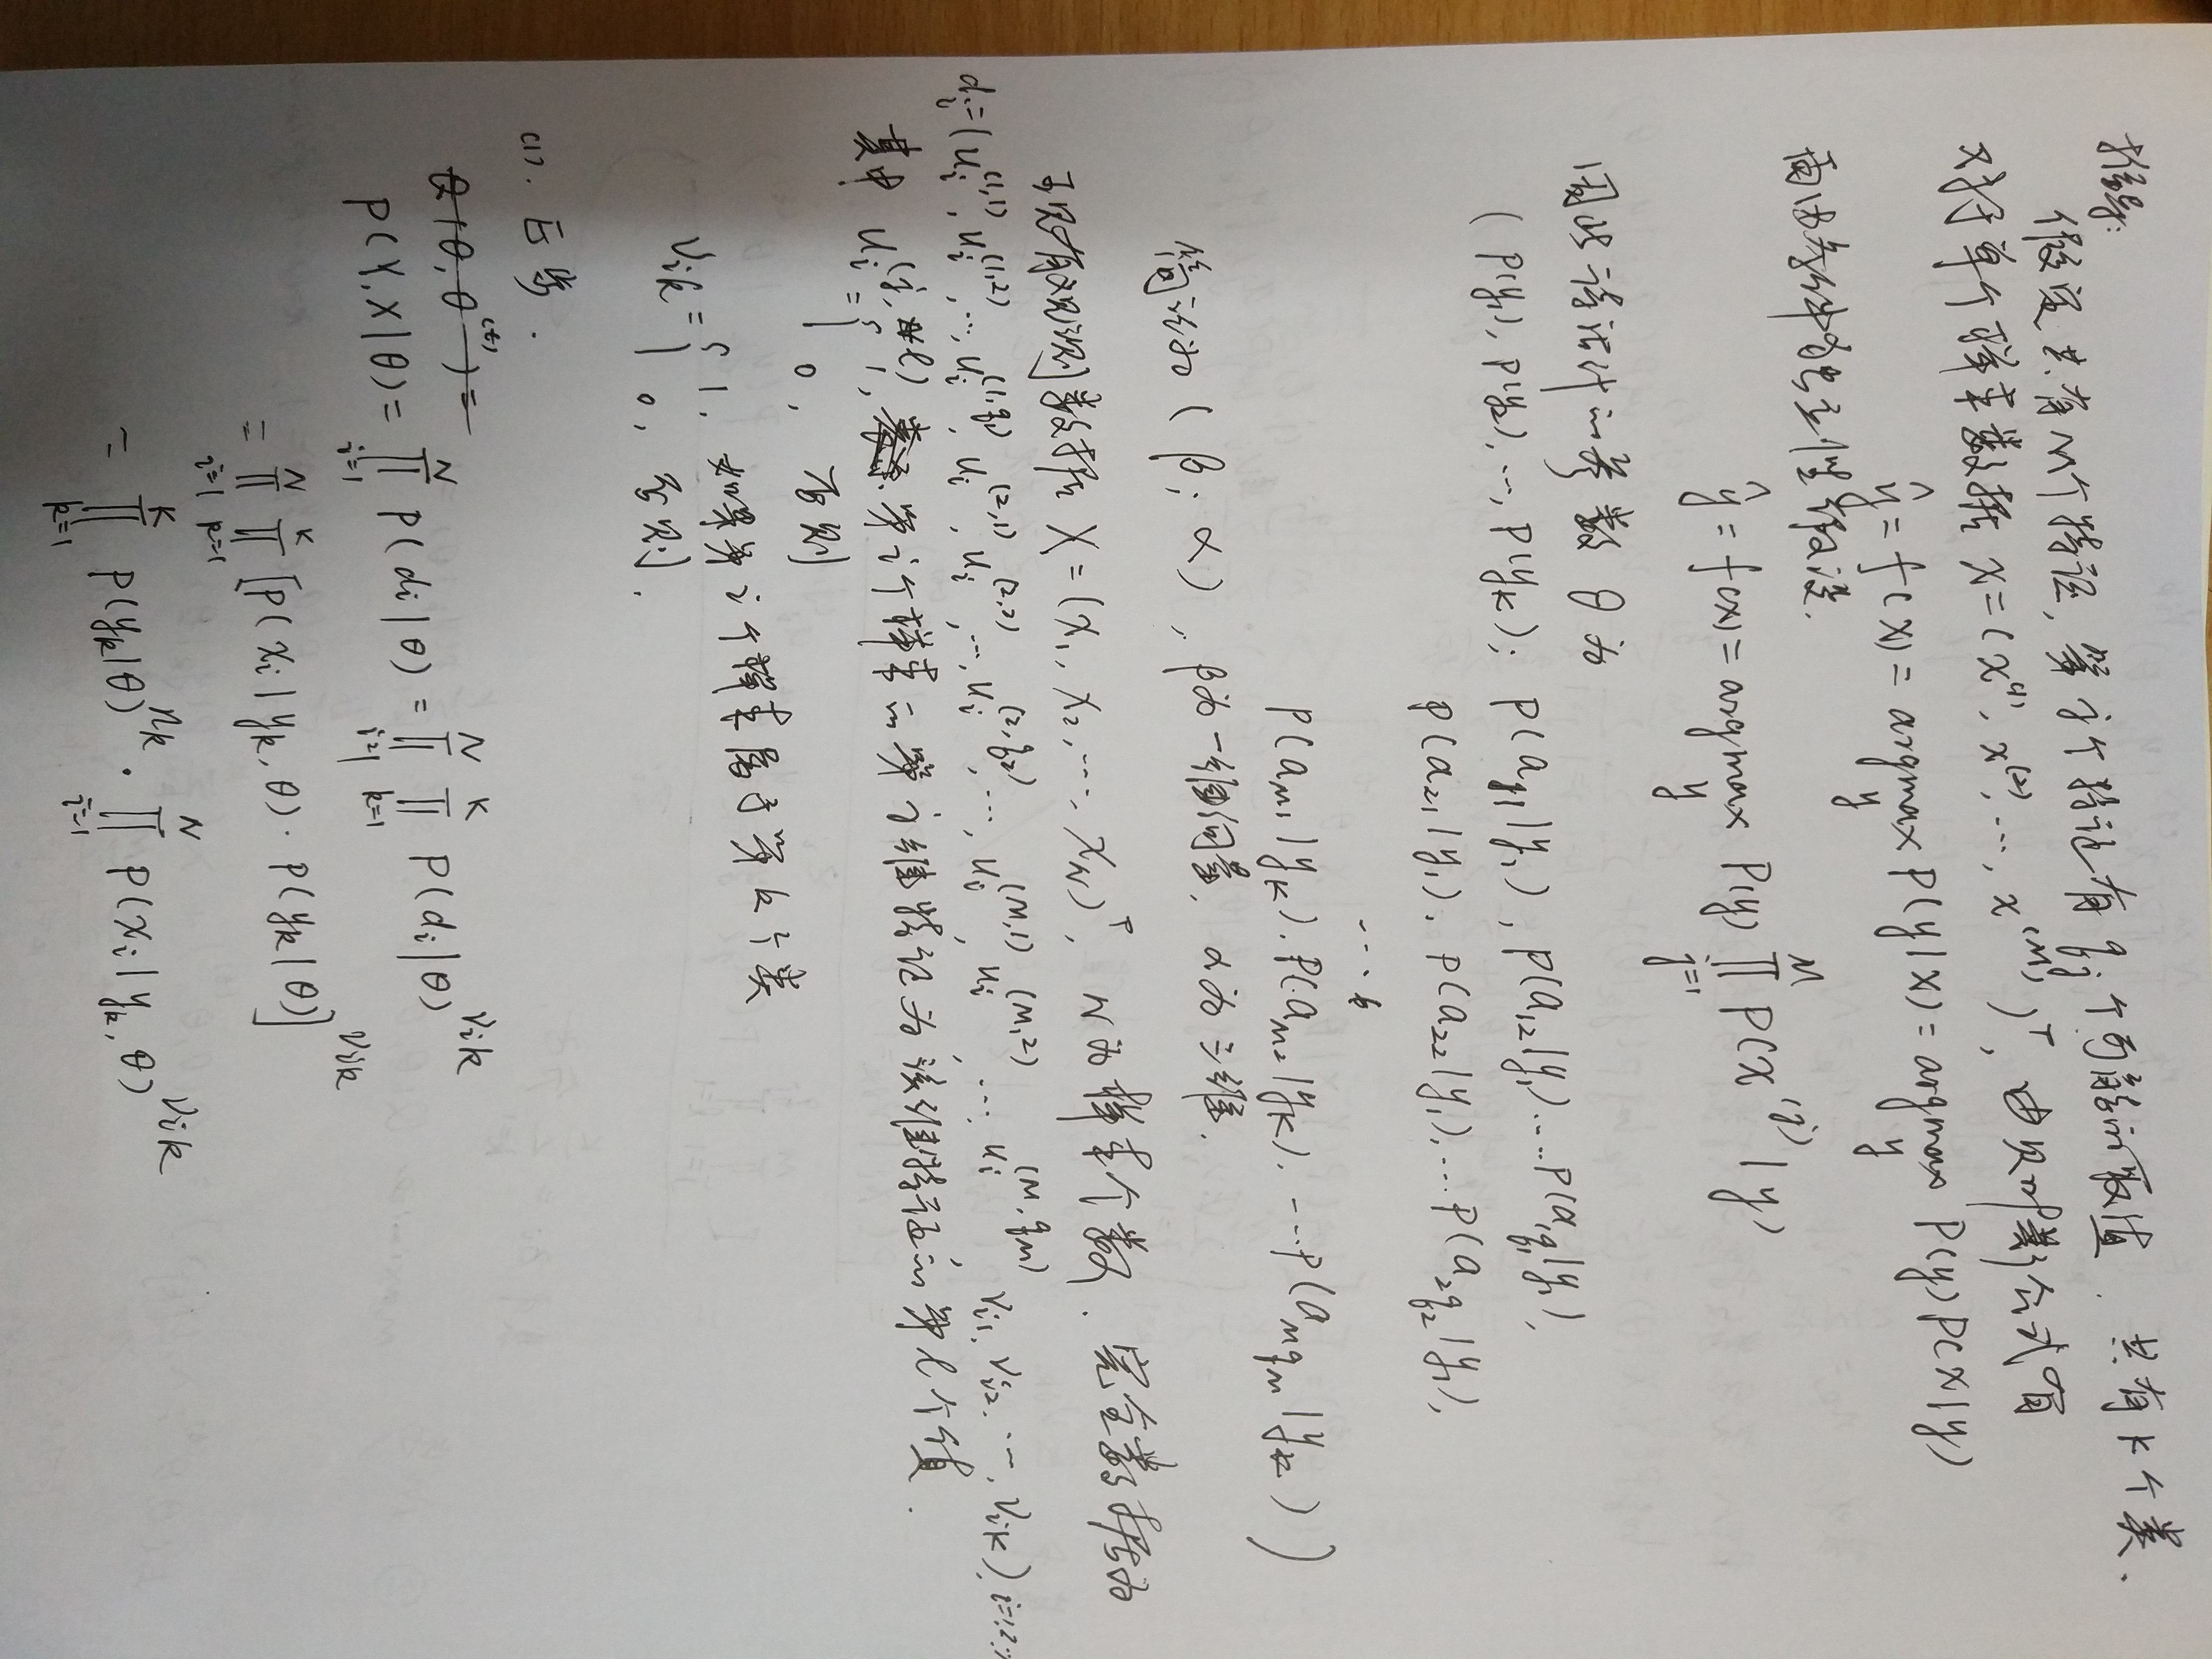 推导:
假定共有M个特征, 第j个特征有 q_j 个可能的取值. 共有K个类.
对于单个样本数据 x=(x^{(1)}, x^{(2)}, ..., x^{(M)})^T, 由贝叶斯公式有
ŷ = f(x) = argmax_y P(y|x) = argmax_y P(y)P(x|y)
再由条件独立性假设.
ŷ = f(x) = argmax_y P(y) ∏_{j=1}^{M} P(x^{(j)}|y)
因此待估计的参数 θ 为
(P(y_1), P(y_2), ..., P(y_K); P(a_{11}|y_1), P(a_{12}|y_1)....P(a_{1q_1}|y_1),
P(a_{21}|y_1), P(a_{22}|y_1), ...P(a_{2q_2}|y_1),
....
P(a_{M1}|y_K). P(a_{M2}|y_K). ....P(a_{Mq_M}|y_K))
简记为 (β; α), β为一维向量, α为三维.
现有观测数据 X=(x_1, x_2, ..., x_N)^T, N为样本个数. 完全数据为
d_i=(u_i^{(1,1)}, u_i^{(1,2)}, ..., u_i^{(1,q_1)}, u_i^{(2,1)}, u_i^{(2,2)}, ..., u_i^{(2,q_2)}, ..., u_i^{(M,1)}, u_i^{(M,2)}, ..., u_i^{(M,q_M)}, v_{i1}, v_{i2}, ..., v_{iK}), i=1,2,..
其中 u_i^{(j,l)} = { 1, 第i个样本的第j维特征为该维特征的第l个值.
0, 否则
v_{ik} = { 1, 如果第i个样本属于第k个类
0, 否则.
(1). E步.
Q(θ, θ^{(t)}) =
P(Y,X|θ) = ∏_{i=1}^{N} P(d_i|θ) = ∏_{i=1}^{N} ∏_{k=1}^{K} P(d_i|θ)^{v_{ik}}
= ∏_{i=1}^{N} ∏_{k=1}^{K} [P(x_i|y_k, θ) · P(y_k|θ)]^{v_{ik}}
= ∏_{k=1}^{K} P(y_k|θ)^{n_k} · ∏_{i=1}^{N} P(x_i|y_k, θ)^{v_{ik}}